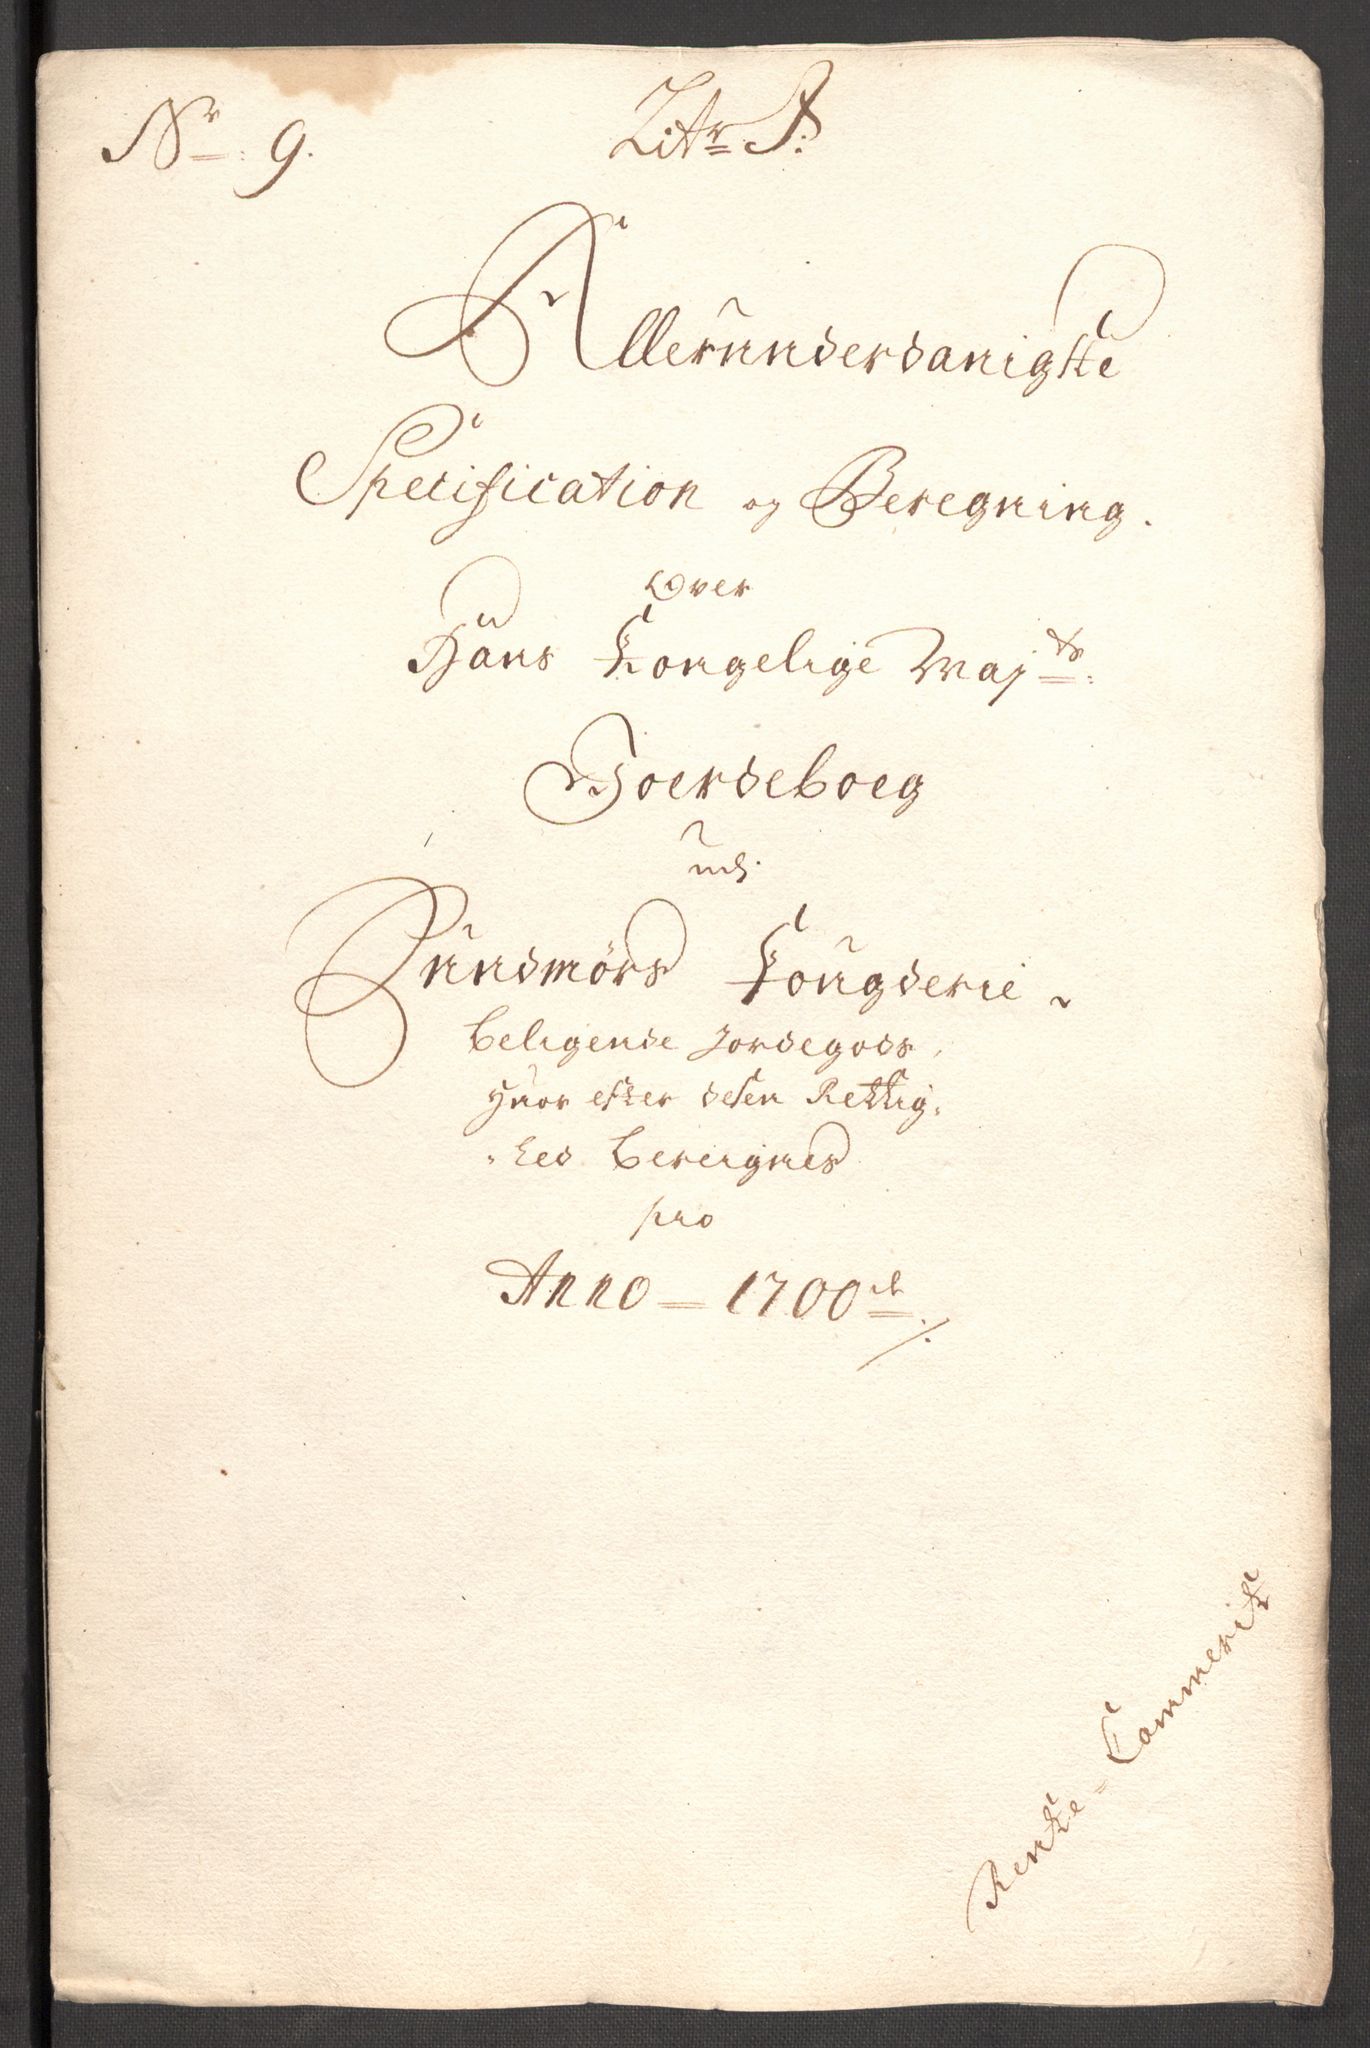 Nr: 9.
Litr:
Allerunderdanigste
Specification og Beregning.
Over
Hans Kongelige Mayts:
Joerdeboeg
udi
Sundmørs Fougderie
beligende Jordegods,
Huor efter desen Rettig-
-hed Bereignes
pro
Anno 1700
Rente-Cammerit